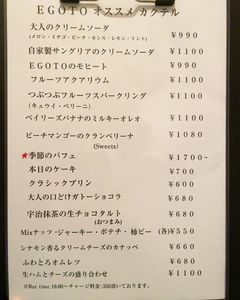 EGOTO オススメ カクテル
大人のクリームソーダ ￥990
(メロン・イチゴ・ピーチ・カシス・レモン・ミント)
自家製サングリアのクリームソーダ ￥1100
EGOTOのモヒート ￥990
フルーツアクアリウム ￥1100
つぶつぶフルーツスパークリング ￥1100
(キュウイ・ベリーニ)
ベイリーズバナナのミルキーオレオ ￥1100
ピーチマンゴーのクランベリーナ ￥1080
(Sweets)
★季節のパフェ ￥1700~
本日のケーキ ￥700
クラシックプリン ￥600
大人の口どけガトーショコラ ￥680
宇治抹茶の生チョコタルト ￥680
(おつまみ)
Mixナッツ・ジャーキー・ポテチ・柿ピー (各)￥550
シナモン香るクリームチーズのカナッペ ￥660
ふわとろオムレツ ￥680
生ハムとチーズの盛り合わせ ￥1100
※Bar time 18:00～チャージ料金-350頂いております。